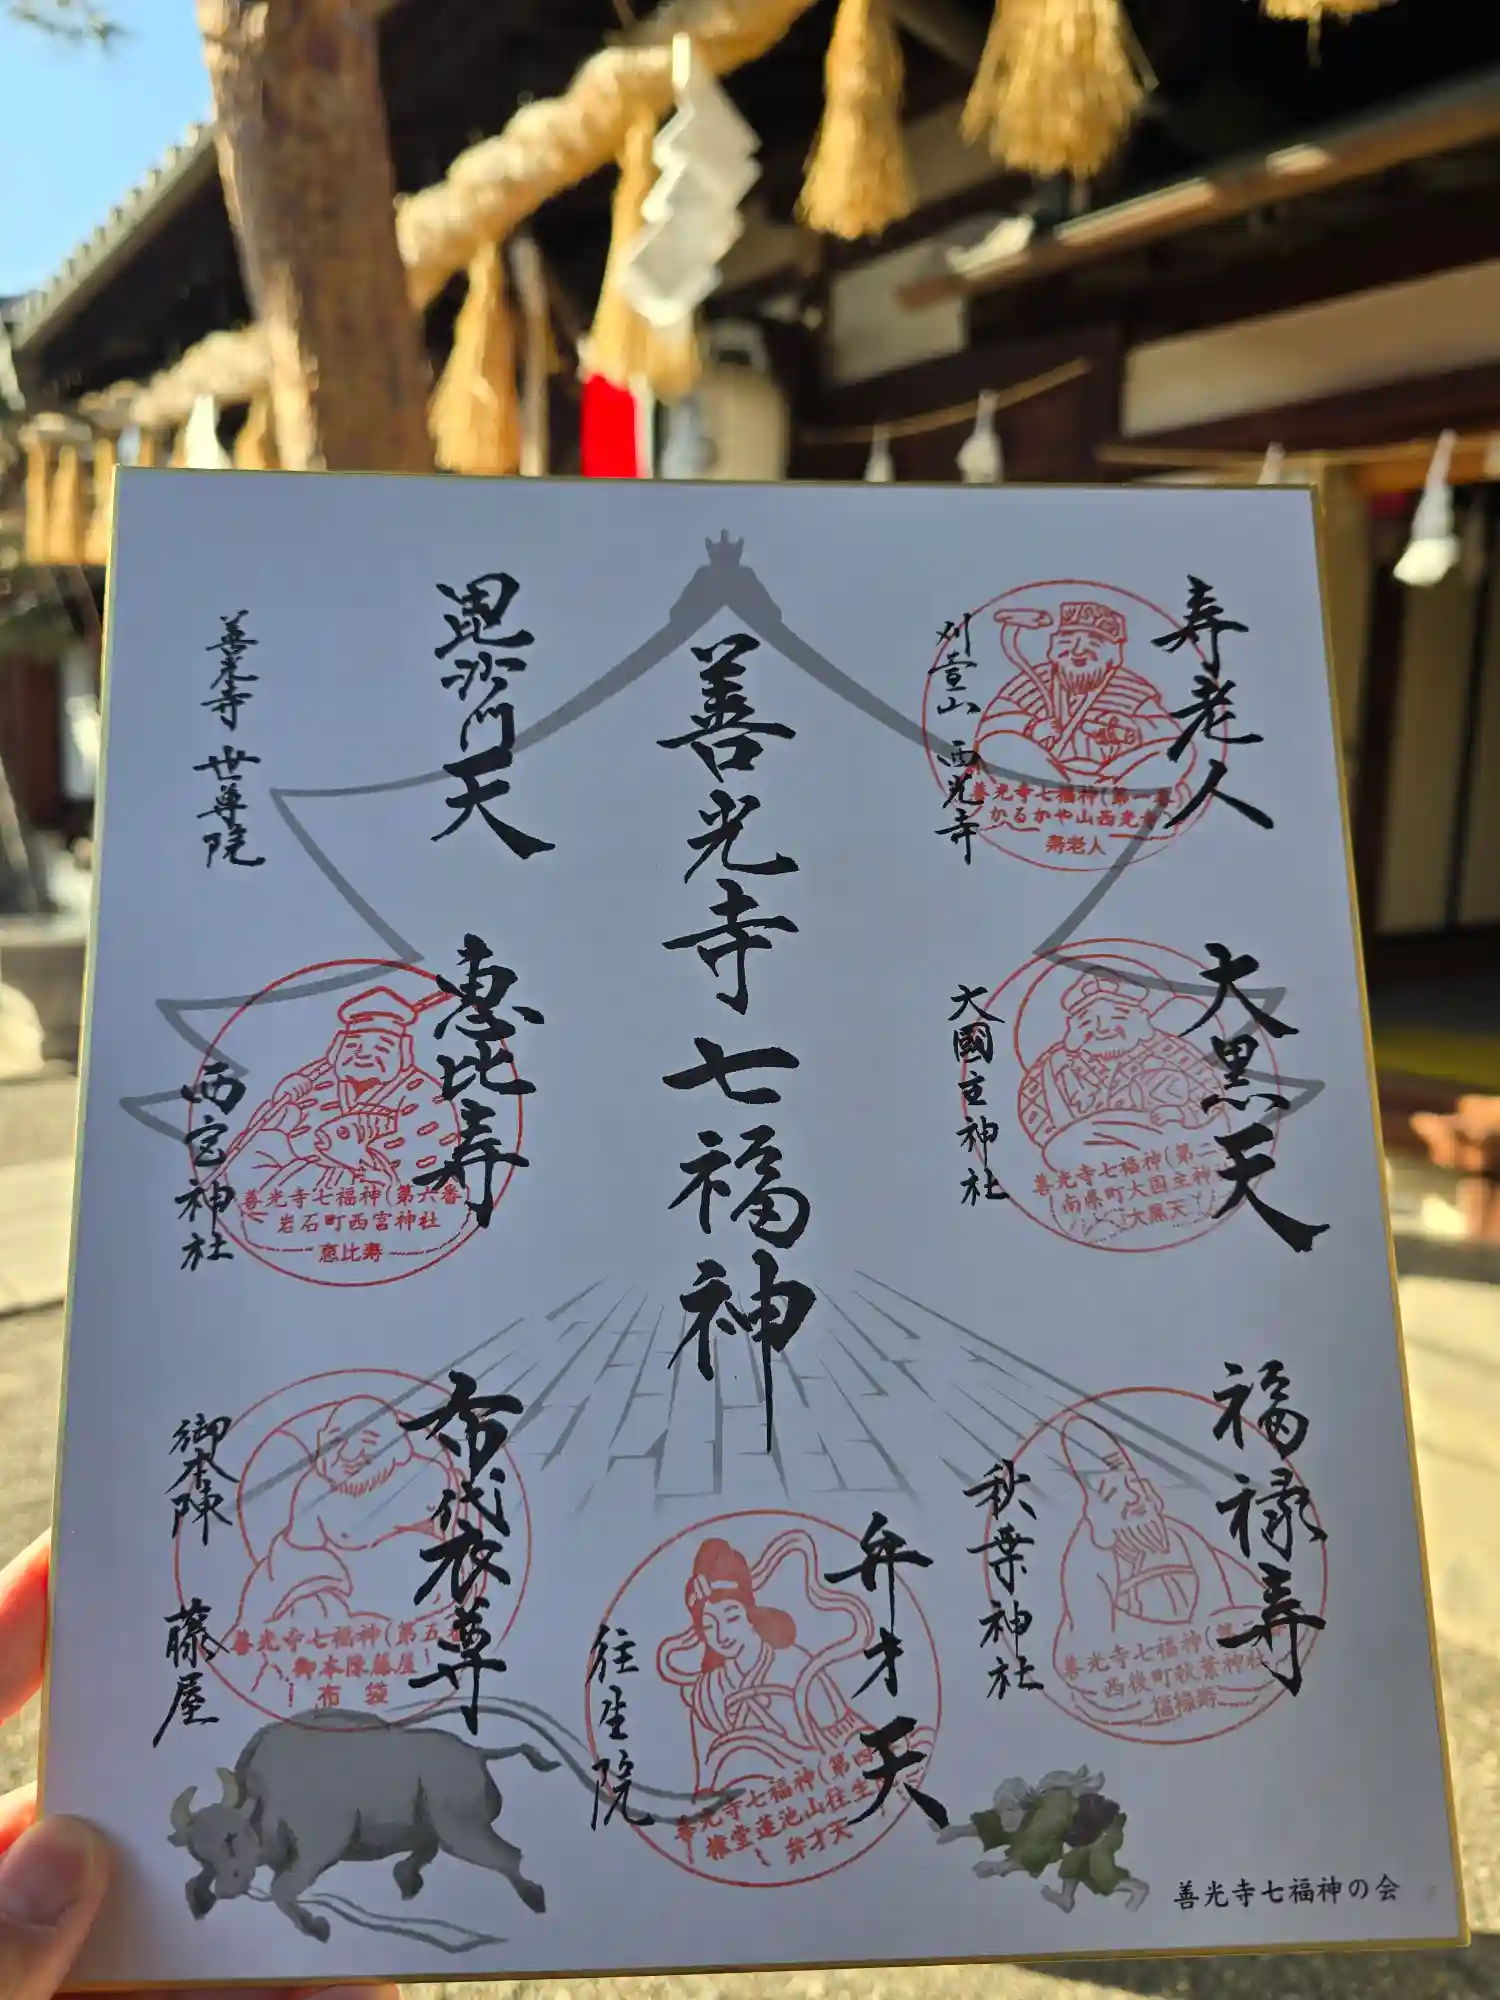 寿老人
刈萱山 西光寺
善光寺七福神(第一番)
かるかや山西光寺
寿老人
大黒天
大國主神社
善光寺七福神(第二
南県町大国主神
大黒天
福禄寿
秋葉神社
善光寺七福神(第三
西後町秋葉神社
福禄寿
善光寺七福神
弁才天
往生院
善光寺七福神(第四
権堂蓮池山往生
弁才天
毘沙門天
善光寺 世尊院
恵比寿
西宮神社
善光寺七福神(第六番
岩石町西宮神社
恵比寿
布代衣尊
御本陳 藤屋
善光寺七福神(第五
御本陳藤屋
布袋
善光寺七福神の会